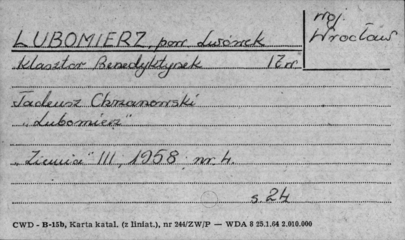 LUBOMIERZ, pow. Lwówek
woj. Wrocław
Klasztor Benedyktynek 17 w.
Tadeusz Chrzanowski
"Lubomierz"
"Ziemia" III, 1958 nr. 4.
s. 24
CWD - B-15b, Karta katal. (z liniat.), nr 244/ZW/P — WDA 8 25.1.64 2.010.000